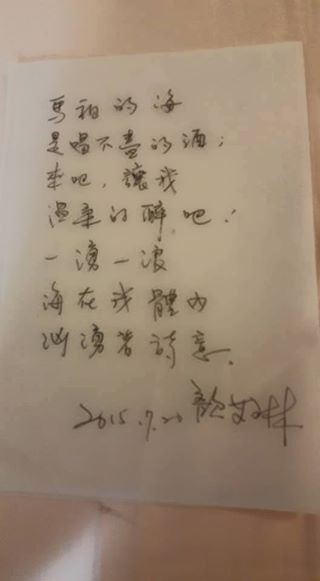 馬祖的海
是唱不盡的酒；
來吧，讓我
溫柔的醉吧！
一湧一浪
海在我體內
洶湧著詩意.
2015.7.20 顏艾琳